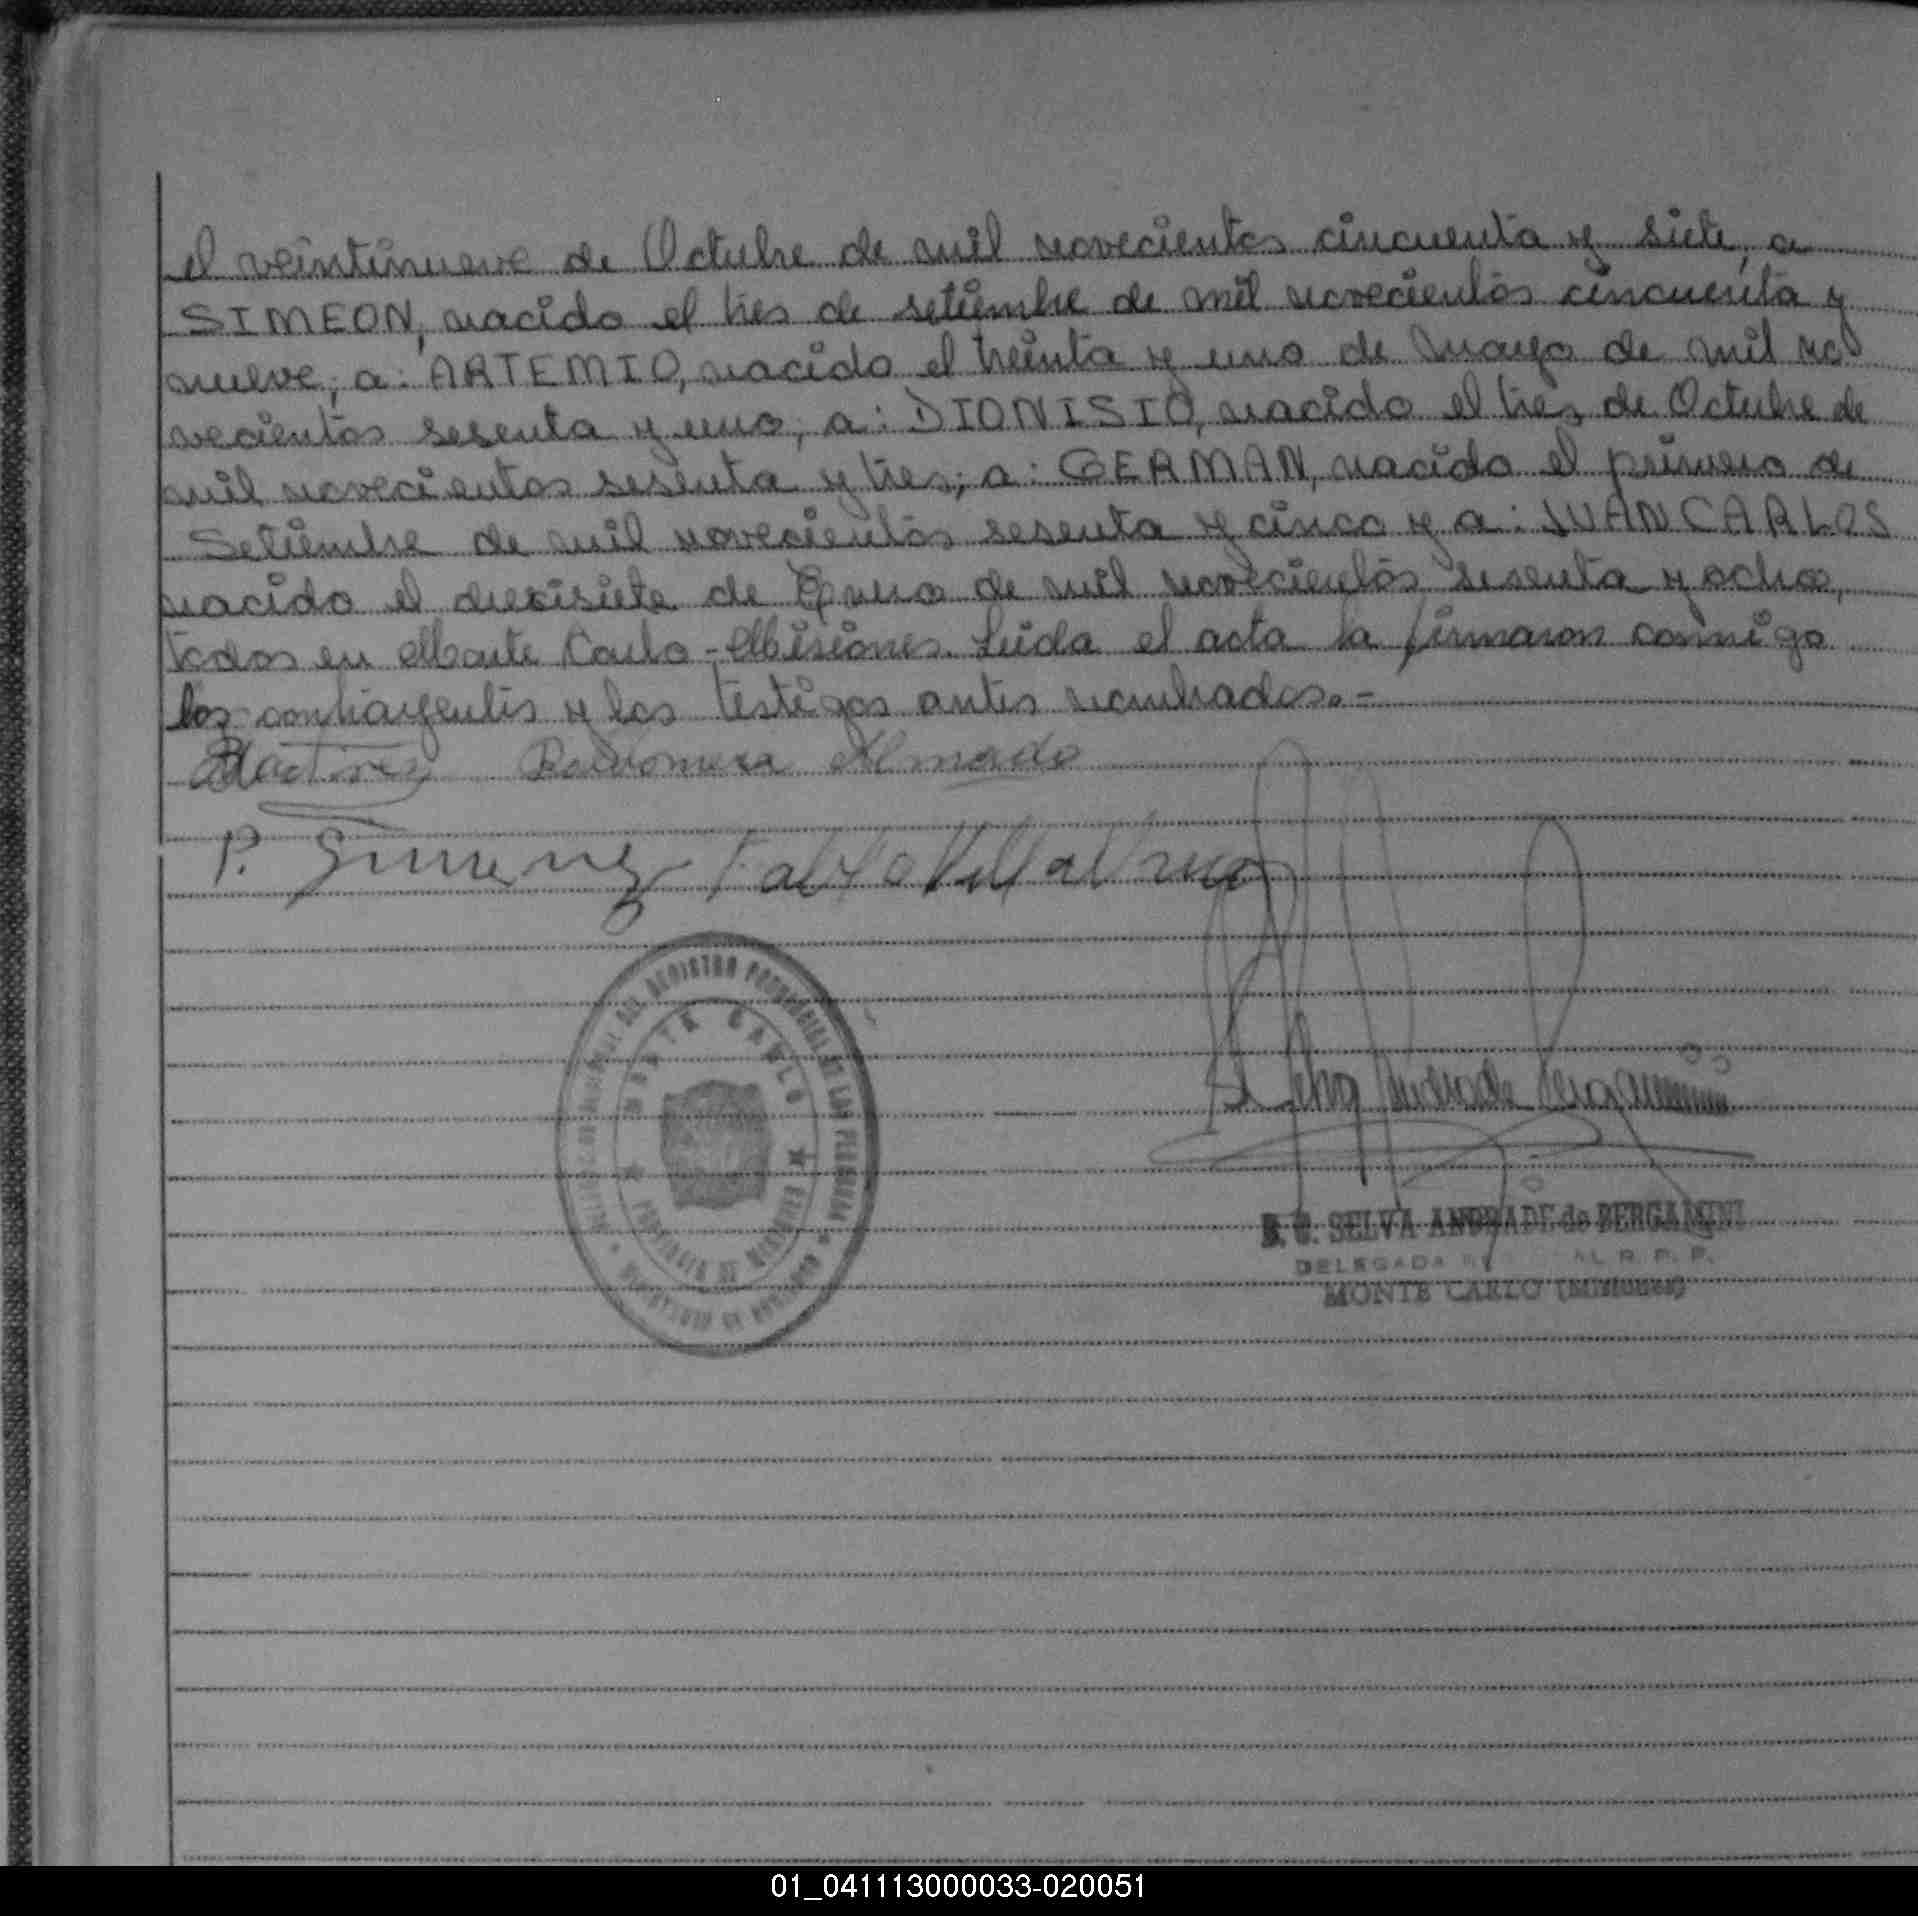 el veintinueve de Octubre de mil novecientos cincuenta y siete, a
SIMEON, nacido el tres de setiembre de mil novecientos cincuenta y
nueve; a: ARTEMIO, nacido el treinta y uno de Mayo de mil no
vecientos sesenta y uno; a: DIONISIO, nacido el tres de Octubre de
mil novecientos sesenta y tres; a: GERMAN, nacido el primero de
Setiembre de mil novecientos sesenta y cinco y a: JUAN CARLOS
nacido el diecisiete de Enero de mil novecientos sesenta y ocho,
todos en Monte Carlo - Misiones. Leida el acta la firmaron conmigo
los contrayentes y los testigos antes nombrados.-
Martinez Almada
P. Gimenez Villalva
DEL REGISTRO PROVINCIAL DE LAS PERSONAS
MONTE CARLO
PROVINCIA DE MISIONES
Selva Andrade de Bergamini
SELVA ANDRADE de BERGAMINI
DELEGADA R. P. P.
MONTE CARLO (Misiones)
01_041113000033-020051